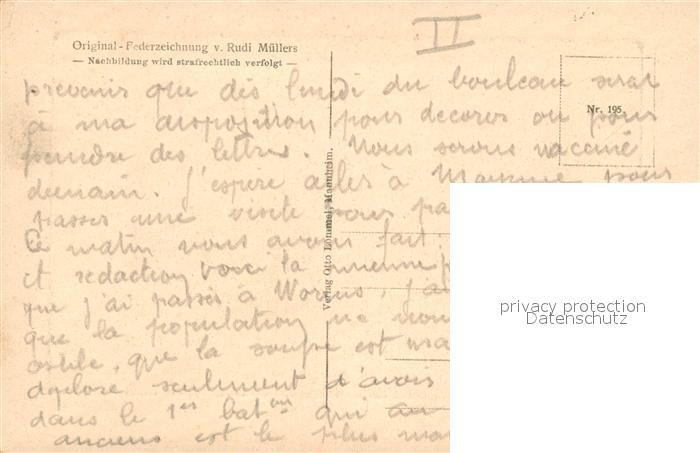 II
Original-Federzeichnung v. Rudi Müllers
— Nachbildung wird strafrechtlich verfolgt —
Nr. 195.
Verlag Otto Hammel, Mannheim.
prevenir que dès lundi du bouleau serai
à ma disposition pour decorer ou pour
peindre des lettres. Nous serons vacciné
demain. J'espère aller à Mayence pour
passer une visite pour
Ce matin nous avons fait
et redaction voici la mienne
que j'ai passés à Worms, j'ai
que la population ne
ostile, que la soupe est
deplore seulement d'avoir
dans le 1er baton qui
anciens est le plus
privacy protection
Datenschutz